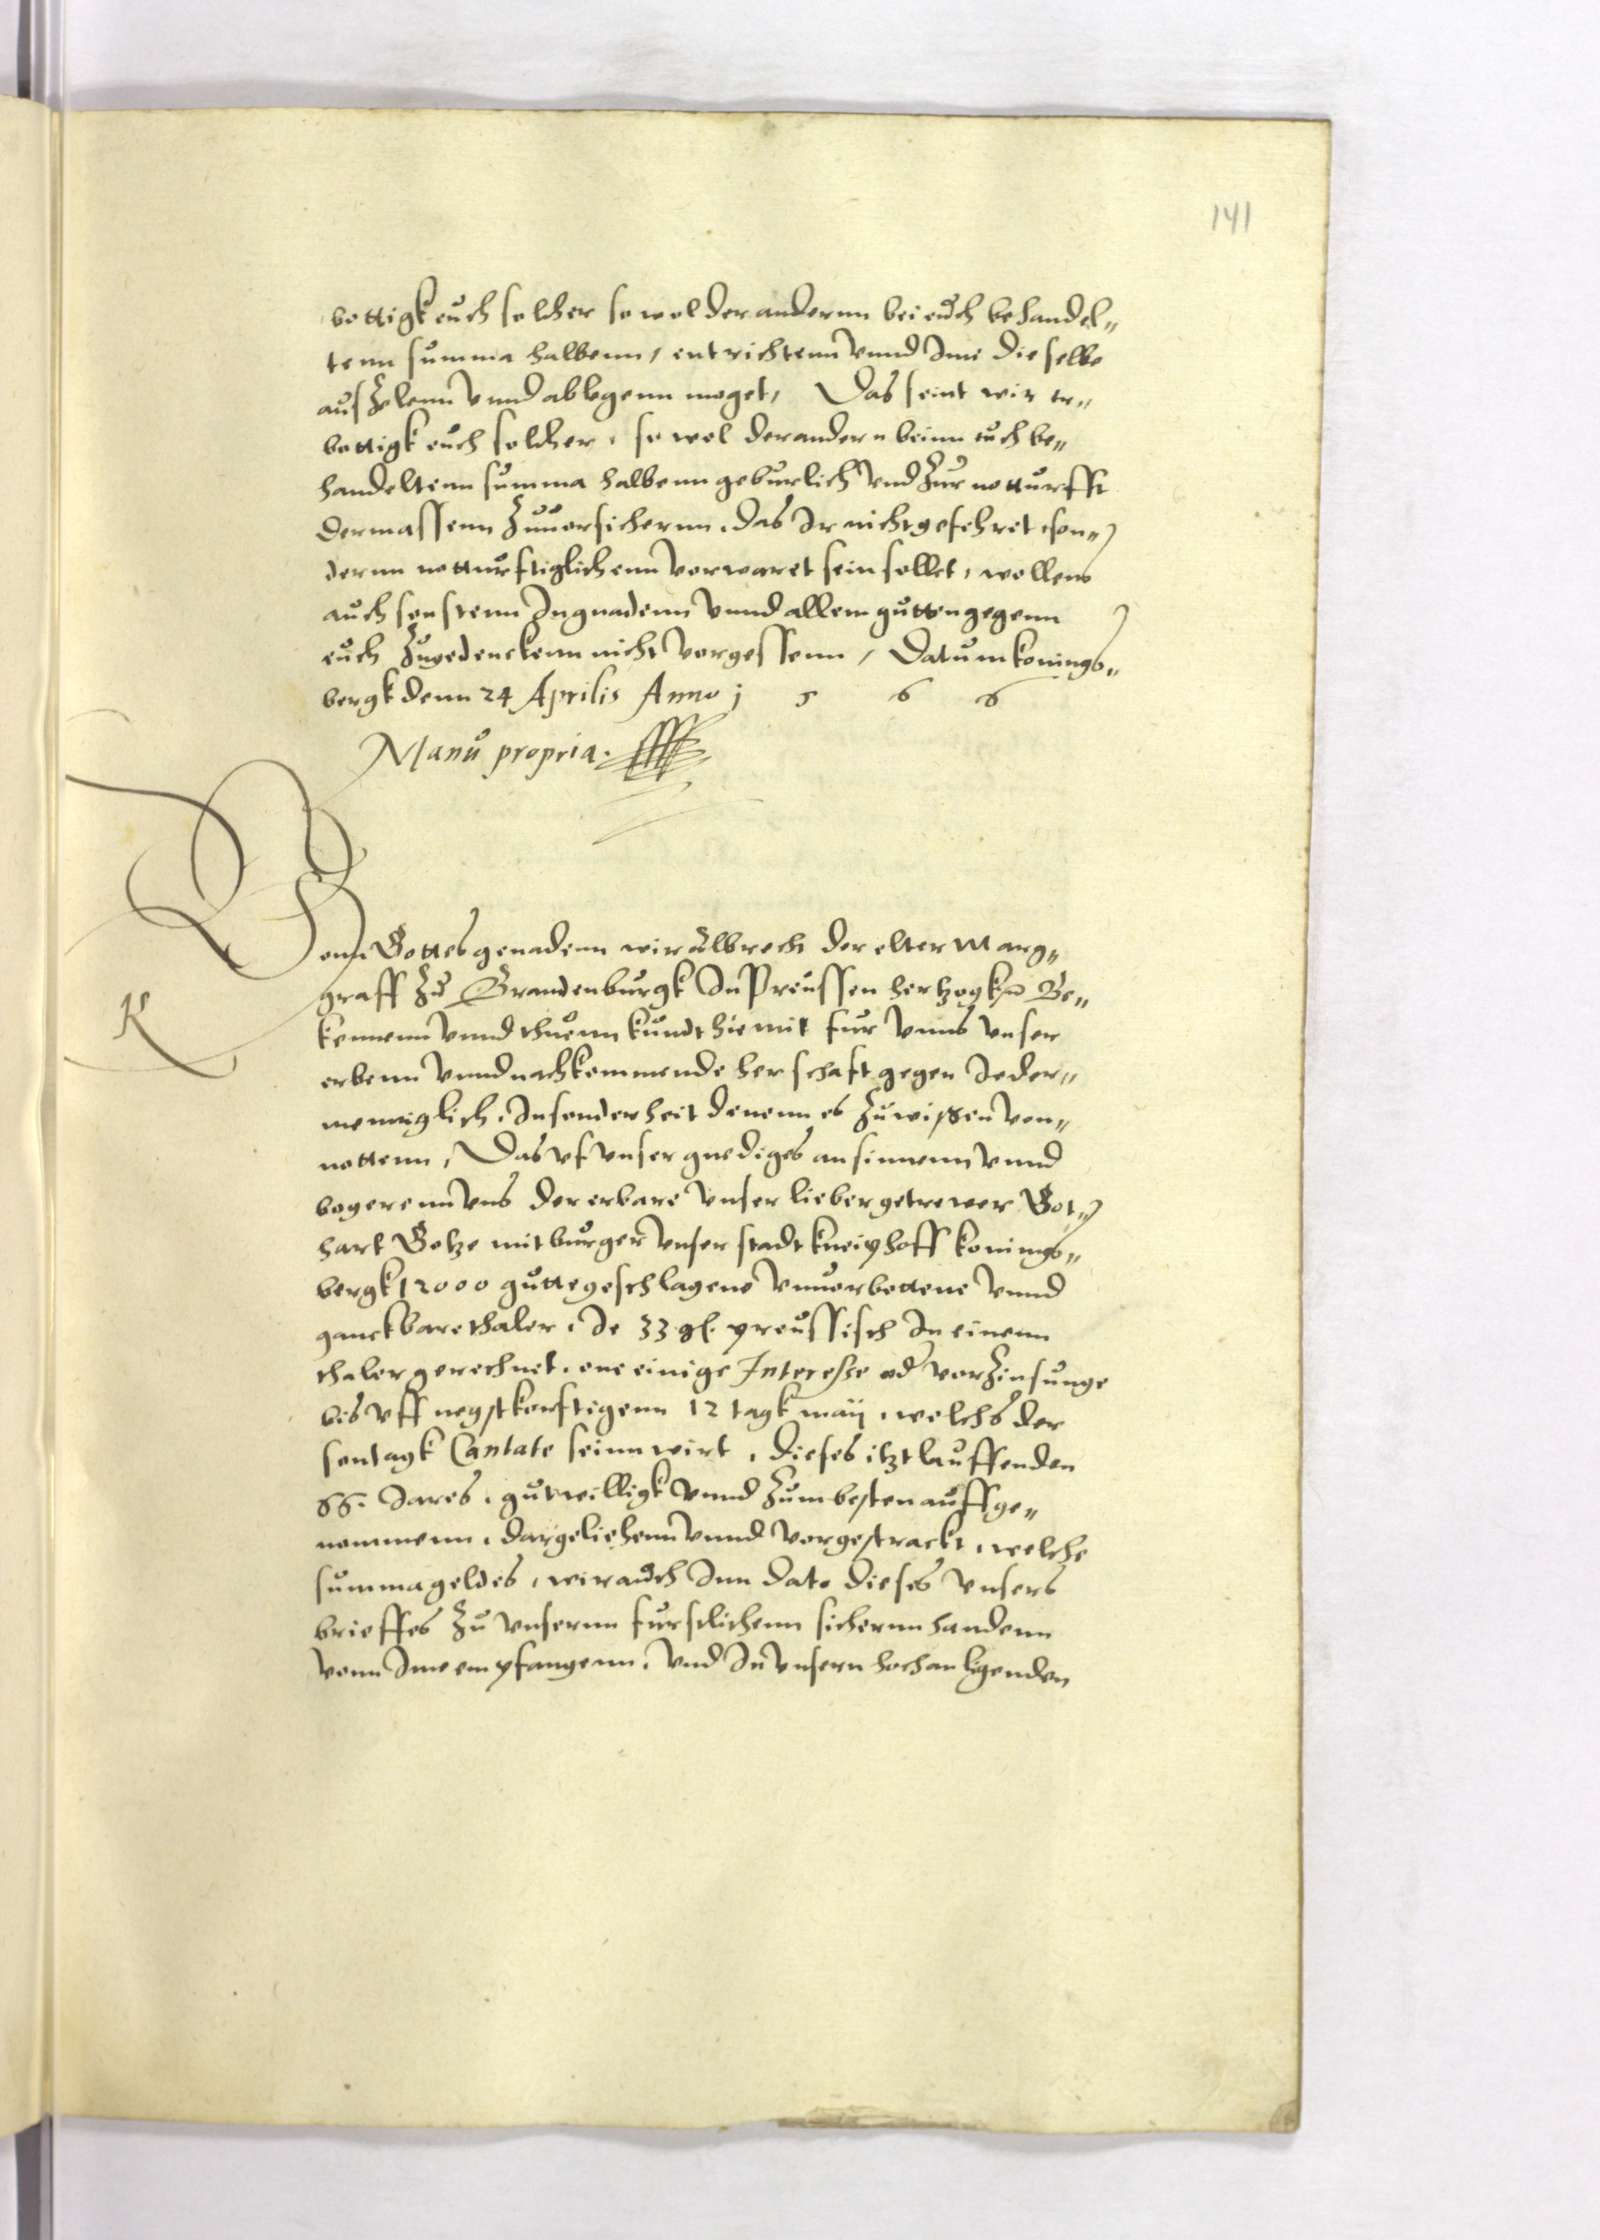 141
bottigk euch solcher so wol der andernn bei euch behandel„
tenn summa halbenn, entrichtenn vnnd Ime dieselbe
auszelenn vnnd ablegenn moget, Das seint wir er„
bottigk euch solcher, so wol der andern beinn euch be„
handeltenn summa halbenn geburlich vnd zur notturfft
dermassenn zuuorsichernn, das Ir nicht gefehret, son„
dernn notturftiglichenn vorwaret sein sollet, wollens
auch sonstenn In gnadenn vnnd allem gutten gegenn
euch zugedenckenn nicht vorgessenn, Datum konings„
bergk denn 24 Aprilis Anno 1 5 6 6
Manu propria.
Vonn Gottes genadenn wir Albrech der elter Marg„
graff zu Brandenburgk In Preussen hertzogk Be„
kennenn vnnd thuenn kundt hiemit fur vnns vnser
K
erbenn vnnd nachkommende herschaft gegen Ieder„
menniglich, Insonderheit denenn es zuwißen von„
nottenn, Das vf vnser gnediges ansinnenn vnnd
begerenn vns der erbare vnser lieber getrewer Got„
hart Gotze mitburger vnser stadt kneiphoff konings„
bergk 12000 gutte geschlagene vnuorbottene vnnd
ganckbare thaler, Ie 33 gl. preussisch In einenn
thaler gerechnet, one einige Interesse od vorzinsunge
bis vff negstkonftigenn 12 tagk maij, welchs der
sontagk Cantate seinn wirt, dieses itzt lauffenden
66. Iares, gutwilligk vnnd zum besten auffge„
nommenn, dargeliehenn vnnd vorgestrackt, welche
summa geldes, wir auch Inn dato dieses vnsers
brieffes zu vnsernn furstlichenn sichernn handenn
vonn Ime empfangenn, vnd In vnsern hochanligenden